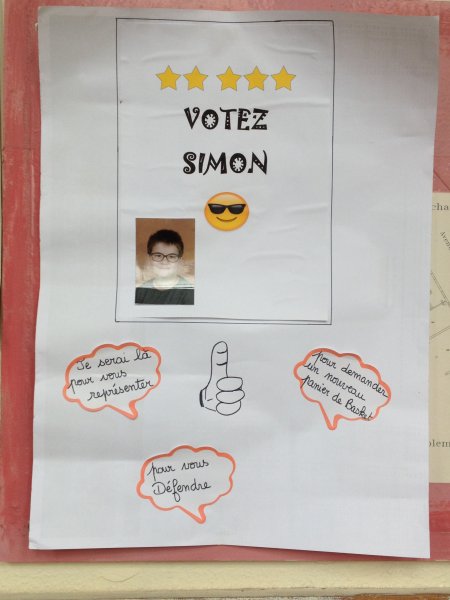 VOTEZ
SIMON
Je serai là
pour vous
représenter
pour demander
un nouveau
panier de Basket
pour vous
Défendre
cha
blem